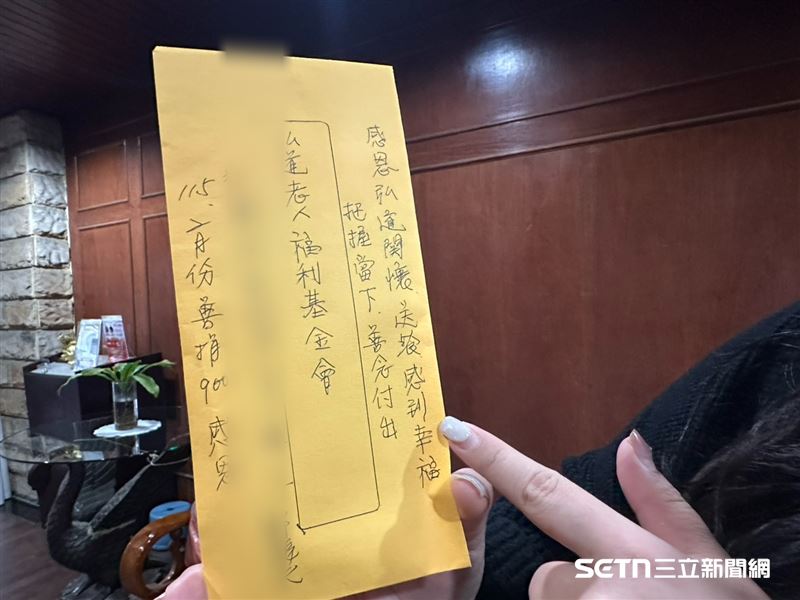 感恩弘道関懷、送餐感到幸福
把握當下、善念付出
弘道老人福利基金會
115.2月份善捐900感恩
SETN三立新聞網